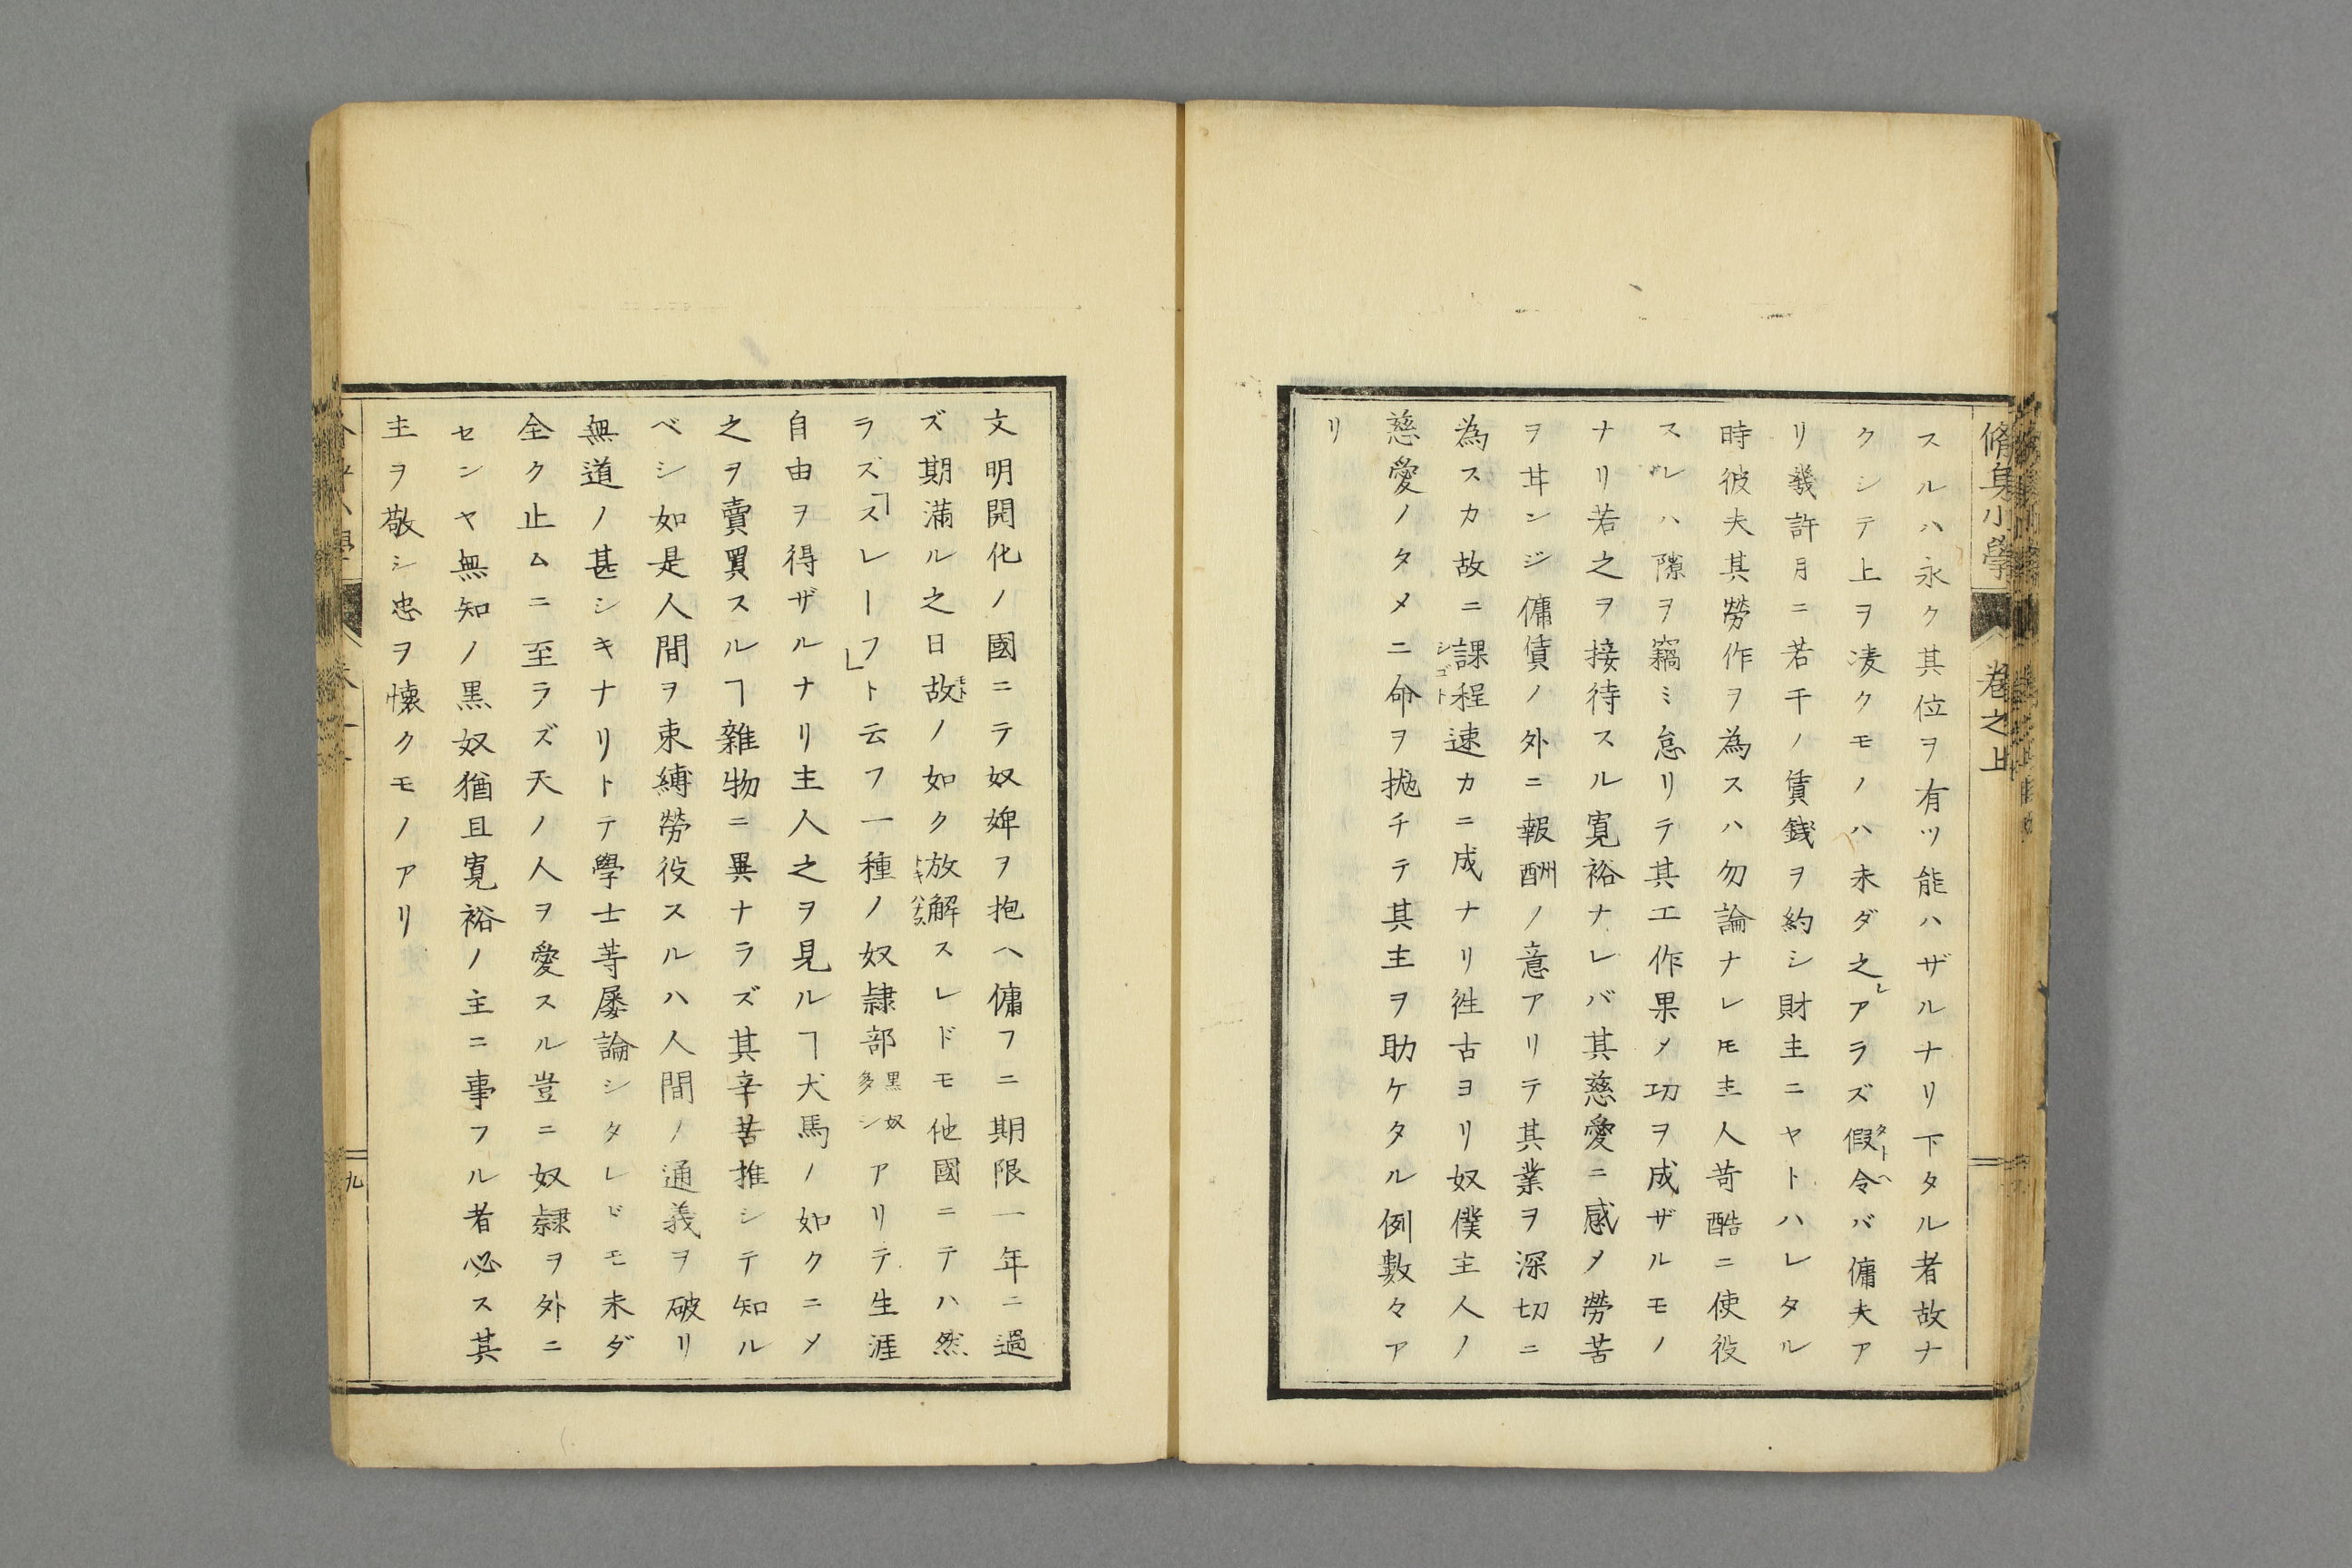 脩身小學
卷之上
スルハ永ク其位ヲ有ツ能ハザルナリ下タル者故ナ
クシテ上ヲ凌クモノハ未ダ之レアラズ假令バ傭夫ア
タトヘ
リ幾許月ニ若干ノ賃銭ヲ約シ財主ニヤトハレタル
時彼夫其勞作ヲ為スハ勿論ナレ𪜈主人苛酷ニ使役
スレハ隙ヲ竊ミ怠リテ其工作果〆功ヲ成ザルモノ
ナリ若之ヲ接待スル寛裕ナレバ其慈愛ニ感〆勞苦
ヲ甘ンジ傭債ノ外ニ報酬ノ意アリテ其業ヲ深切ニ
為スカ故ニ課程速カニ成ナリ徃古ヨリ奴僕主人ノ
シゴト
慈愛ノタメニ命ヲ拋チテ其主ヲ助ケタル例數々ア
リ
文明開化ノ國ニテ奴婢ヲ抱ヘ傭フニ期限一年ニ過
ズ期滿ル之日故ノ如ク放解スレドモ他國ニテハ然
モト
トキハナス
ラズ「スレーフ」ト云フ一種ノ奴隷部黒奴多シアリテ生涯
自由ヲ得ザルナリ主人之ヲ見ルヿ犬馬ノ如クニ〆
之ヲ賣買スルヿ雜物ニ異ナラズ其辛苦推シテ知ル
ベシ如是人間ヲ束縛勞役スルハ人間ノ通義ヲ破リ
無道ノ甚シキナリトテ學士等屡論シタレドモ未ダ
全ク止ムニ至ラズ天ノ人ヲ愛スル豈ニ奴隷ヲ外ニ
センヤ無知ノ黒奴猶且寛裕ノ主ニ事フル者必ス其
主ヲ敬シ忠ヲ懷クモノアリ
九